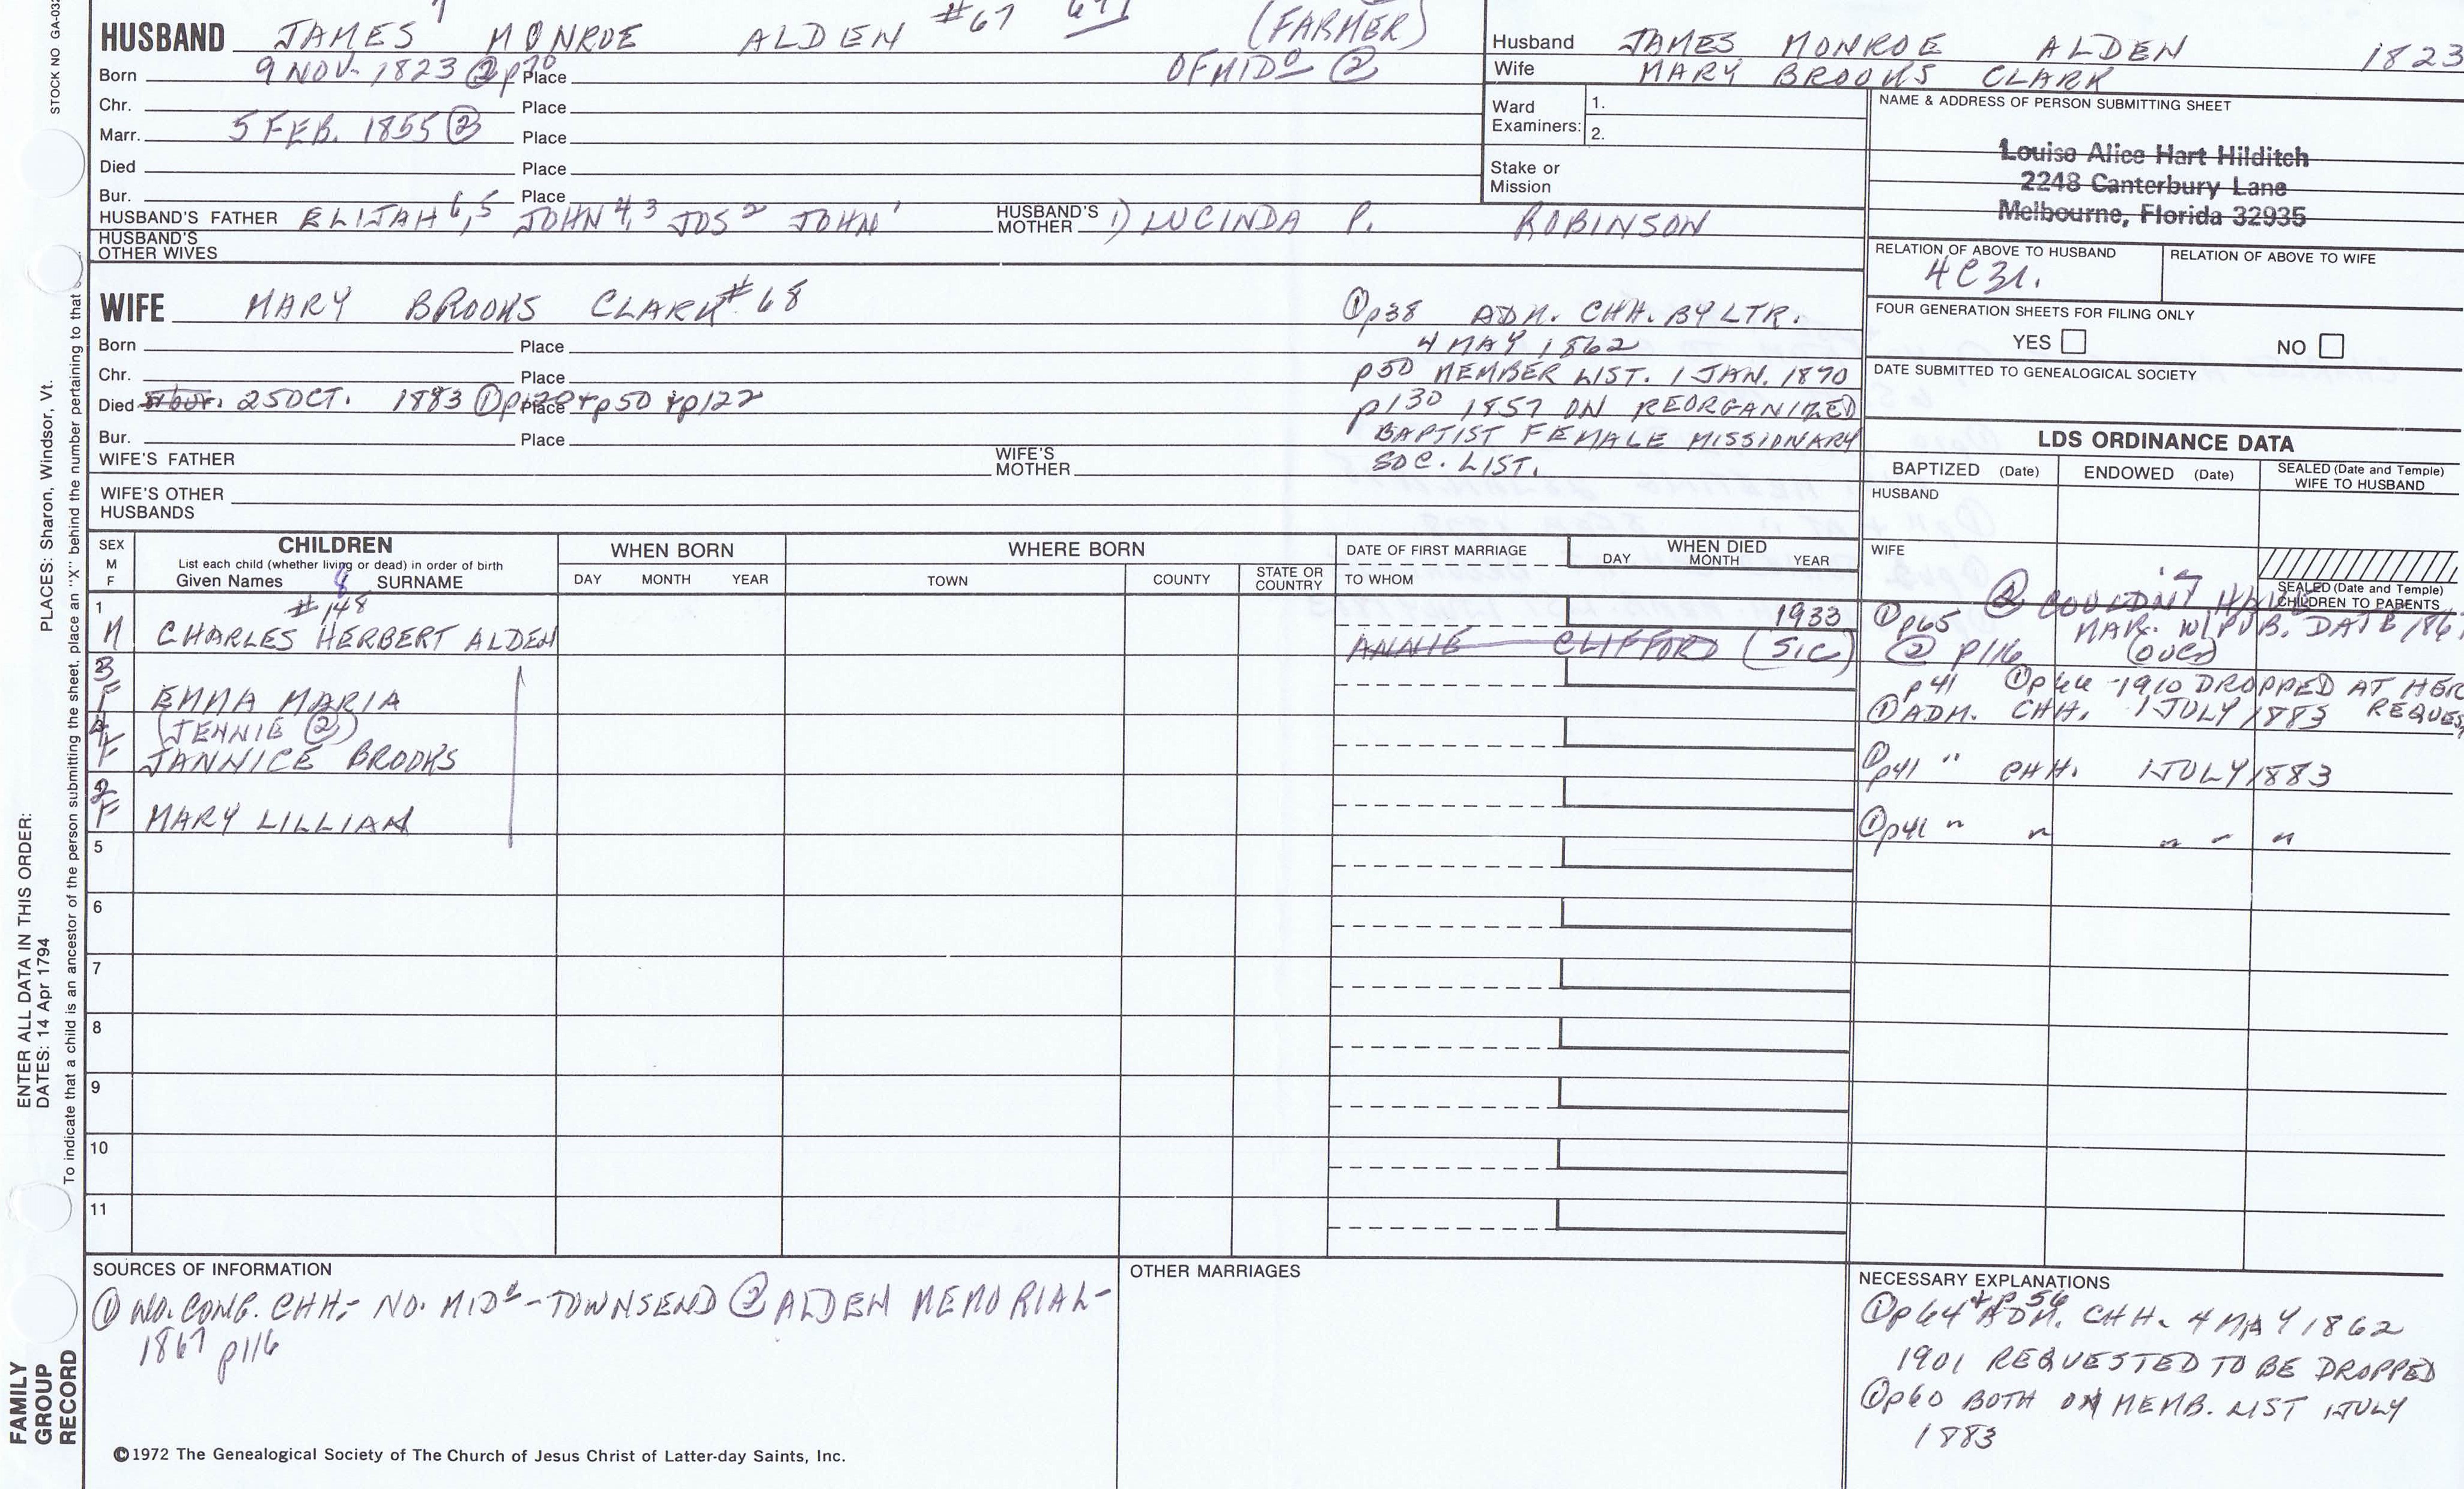 STOCK NO GA-032
PLACES: Sharon, Windsor, Vt.
ENTER ALL DATA IN THIS ORDER:
DATES: 14 Apr 1794
To indicate that a child is an ancestor of the person submitting the sheet, place an "X" behind the number pertaining to that
FAMILY
GROUP
RECORD
HUSBAND JAMES 7 MONROE ALDEN #67 (FARMER)
Born 9 NOV. 1823 ② p70 Place OF MIDº ②
Chr. Place
Marr. 5 FEB. 1855 ② Place
Died Place
Bur. Place
HUSBAND'S FATHER ELIJAH 6,5 JOHN 4,3 JOS 2 JOHN 1 HUSBAND'S MOTHER 1) LUCINDA P. ROBINSON
HUSBAND'S
OTHER WIVES
WIFE MARY BROOKS CLARK #68 ① p38 ADM. CHH. BY LTR.
Born Place 4 MAY 1862
Chr. Place p50 MEMBER LIST. 1 JAN. 1890
Died 25 OCT. 1883 ① Place + p50 + p122 p130 1857 ON REORGANIZED
Bur. Place BAPTIST FEMALE MISSIONARY
WIFE'S FATHER WIFE'S MOTHER SOC. LIST.
WIFE'S OTHER
HUSBANDS
Husband JAMES MONROE ALDEN 1823
Wife MARY BROOKS CLARK
Ward
Examiners: 1.
2.
Stake or
Mission
NAME & ADDRESS OF PERSON SUBMITTING SHEET
Louise Alice Hart Hilditch
2248 Canterbury Lane
Melbourne, Florida 32935
RELATION OF ABOVE TO HUSBAND RELATION OF ABOVE TO WIFE
4C3r.
FOUR GENERATION SHEETS FOR FILING ONLY
YES NO
DATE SUBMITTED TO GENEALOGICAL SOCIETY
LDS ORDINANCE DATA
BAPTIZED (Date) ENDOWED (Date) SEALED (Date and Temple)
WIFE TO HUSBAND
HUSBAND
WIFE
SEALED (Date and Temple)
CHILDREN TO PARENTS
SEX
M
F
CHILDREN
List each child (whether living or dead) in order of birth
Given Names 8 SURNAME
WHEN BORN
DAY MONTH YEAR
WHERE BORN
TOWN COUNTY STATE OR COUNTRY
DATE OF FIRST MARRIAGE
TO WHOM
WHEN DIED
DAY MONTH YEAR
1 #148 1933 ① p65 ② COULDN'T HAVE
M CHARLES HERBERT ALDEN ANNIE CLIFFORD (SIC) ② p116 MAR. W/ PUB. DATE 1867
(OVER)
3 p41 ① p44 - 1910 DROPPED AT HER
F EMMA MARIA ① ADM. CHH. 1 JULY 1883 REQUEST
4 (JENNIE ②)
F JANNICE BROOKS ① p41 " CHH. 1 JULY 1883
2
F MARY LILLIAN ① p41 " " " " "
5
6
7
8
9
10
11
SOURCES OF INFORMATION
① NO. CONG. CHH. - NO. MIDº - TOWNSEND ② ALDEN MEMORIAL -
1867 p116
OTHER MARRIAGES
NECESSARY EXPLANATIONS
① p64 + p56 ADM. CHH. 4 MAY 1862
1901 REQUESTED TO BE DROPPED
① p60 BOTH ON MEMB. LIST 1 JULY
1883
©1972 The Genealogical Society of The Church of Jesus Christ of Latter-day Saints, Inc.